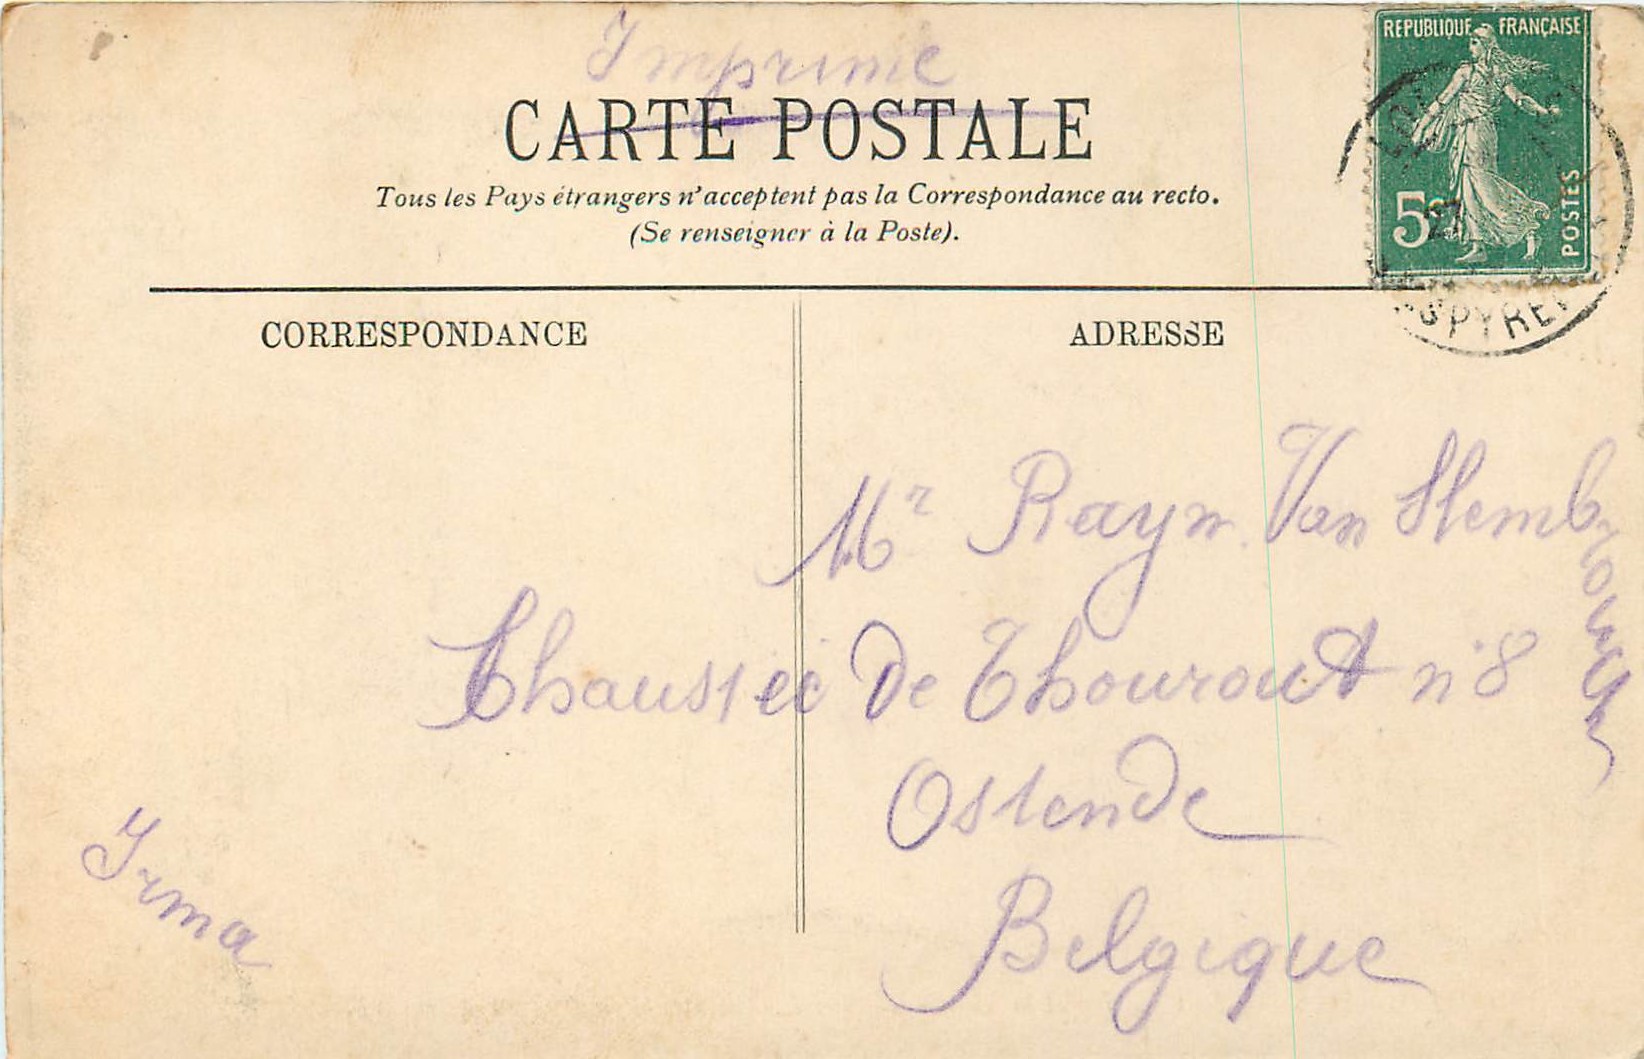 Imprime
CARTE POSTALE
Tous les Pays étrangers n'acceptent pas la Correspondance au recto.
(Se renseigner à la Poste).
REPUBLIQUE FRANÇAISE
5c
POSTES
27
PYRE
CORRESPONDANCE
ADRESSE
Mr Raym Van Slemb
Chaussee De Thourout n° 8
Ostende
Belgique
Irma